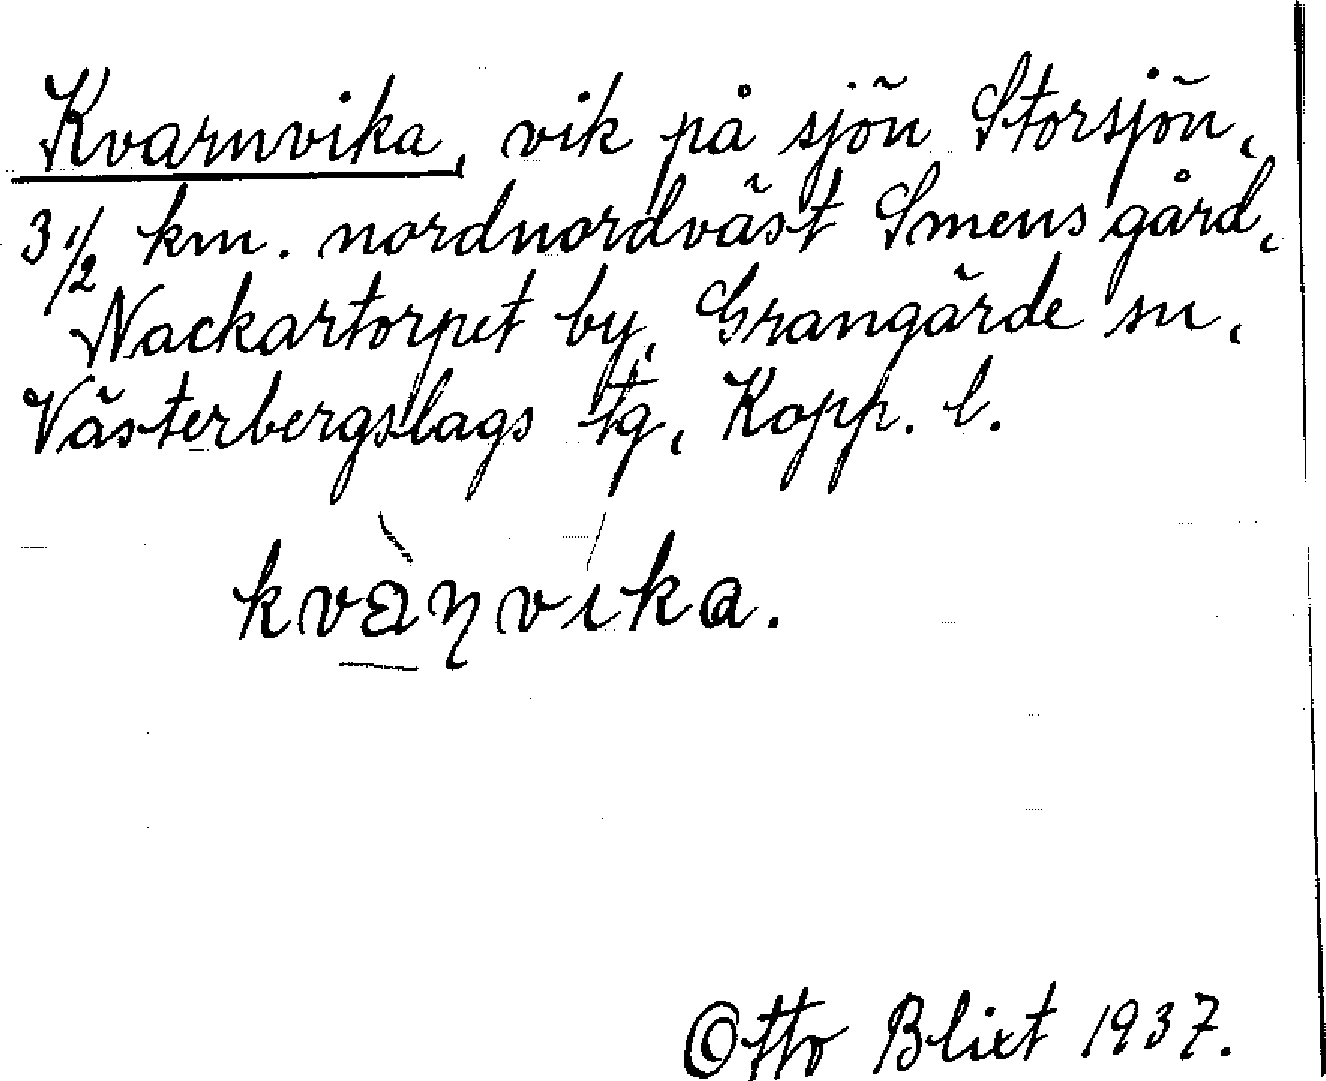 Kvarnvika, vik på sjön Storsjön,
3 1/2 km. nordnordväst Smens gård,
Nackartorpet by, Grangärde sn,
Västerbergslags tg, Kopp. l.
kvàɳvíka.
Otto Blixt 1937.